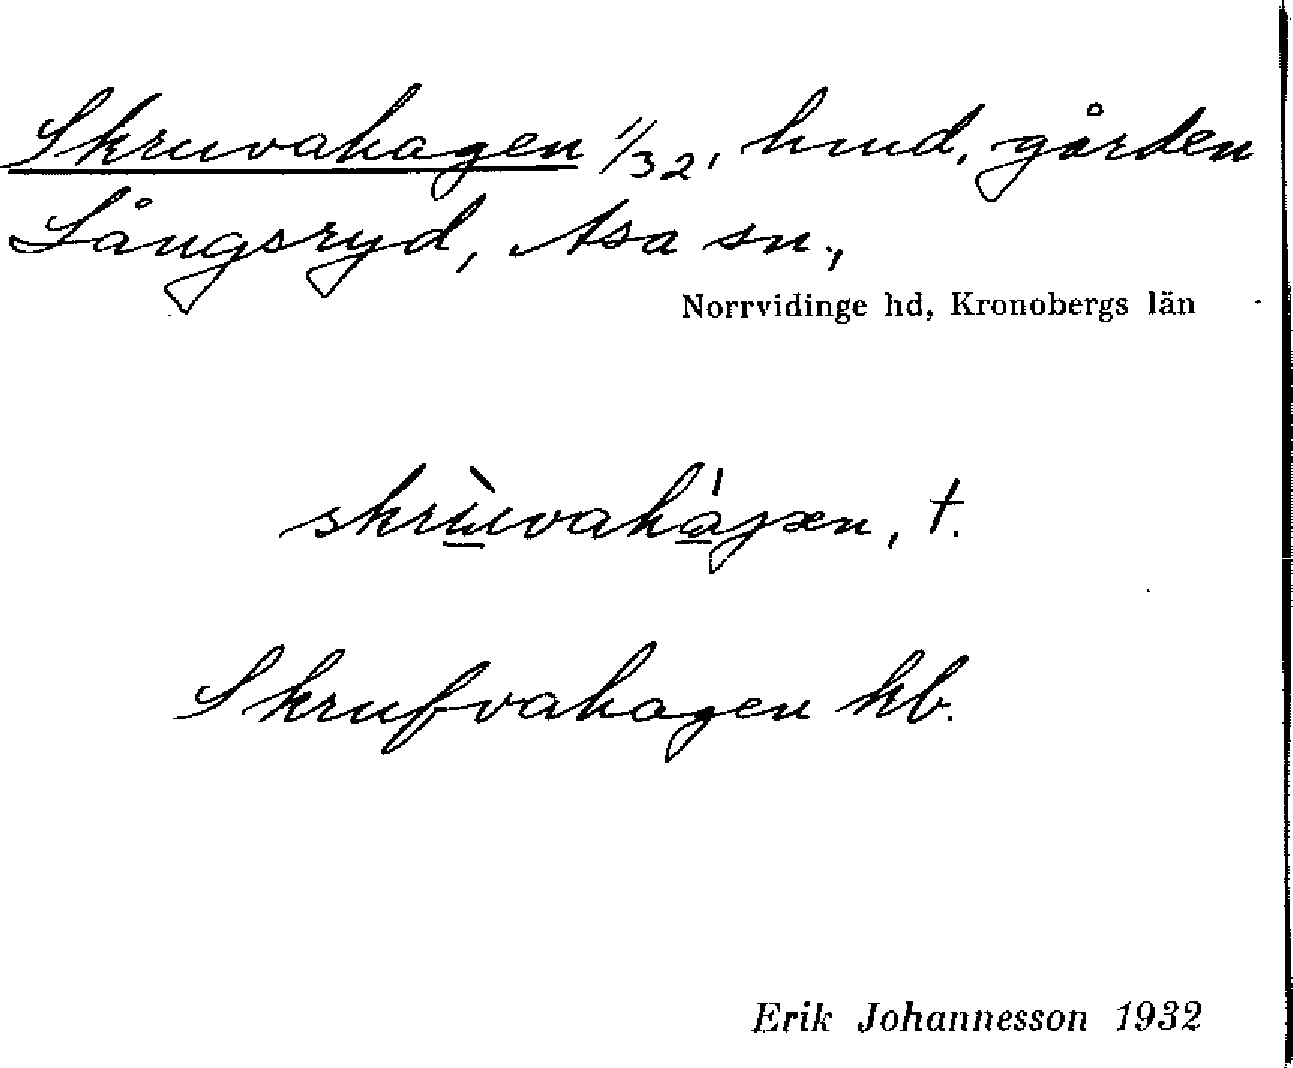 Skruvahagen 1/32, hmd, gården
Långsryd, Asa sn.,
Norrvidinge hd, Kronobergs län
skrùvahágæn, †.
Skrufvahagen kb.
Erik Johannesson 1932